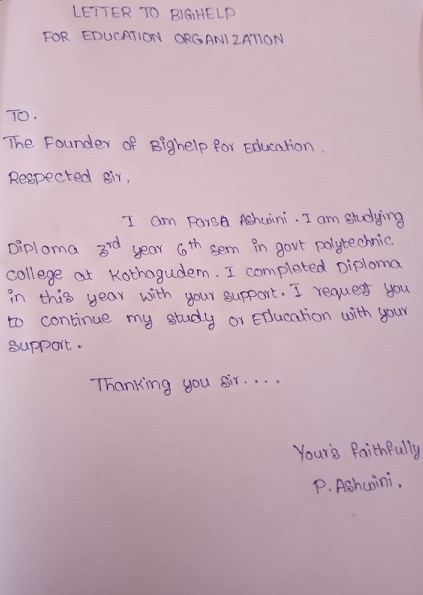 LETTER TO BIGHELP
FOR EDUCATION ORGANIZATION
TO.
The Founder of Bighelp for Education.
Respected Sir,
I am Parsa Ashwini. I am studying
Diploma 3rd year 6th sem in govt polytechnic
college at Kothagudem. I completed Diploma
in this year with your support. I request you
to continue my study or Education with your
support.
Thanking you sir....
Your's faithfully
P. Ashwini.